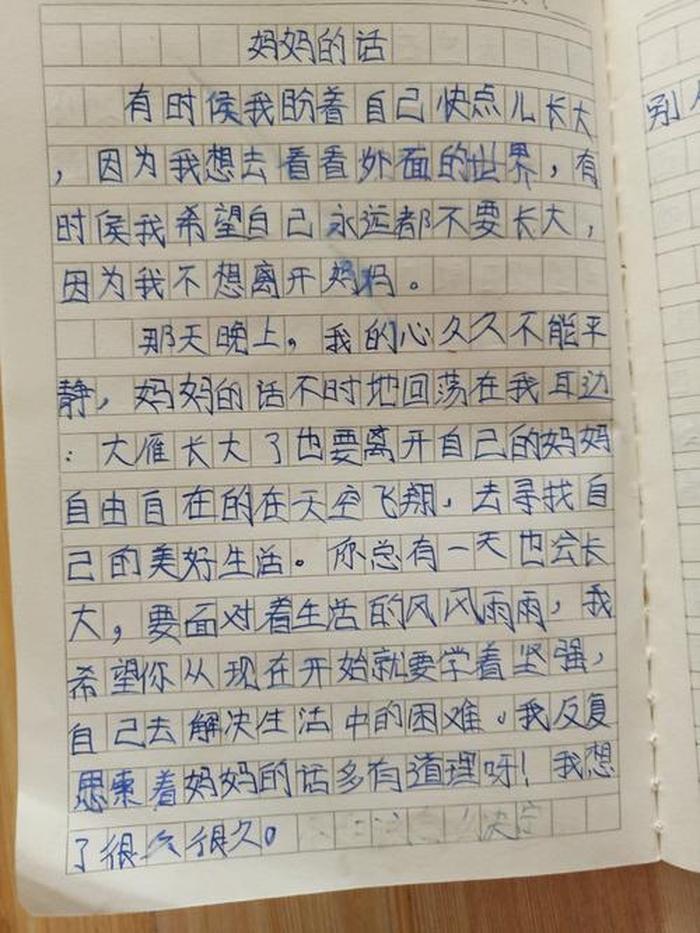 妈妈的话
有时侯我盼着自己快点儿长大
，因为我想去看看外面的世界，有
时侯我希望自己永远都不要长大，
因为我不想离开妈妈。
那天晚上，我的心久久不能平
静，妈妈的话不时地回荡在我耳边
：大雁长大了也要离开自己的妈妈
自由自在的在天空飞翔，去寻找自
己的美好生活。你总有一天也会长
大，要面对着生活的风风雨雨，我
希望你从现在开始就要学着坚强，
自己去解决生活中的困难。我反复
思索着妈妈的话多有道理呀！我想
了很久很久。
决定
别